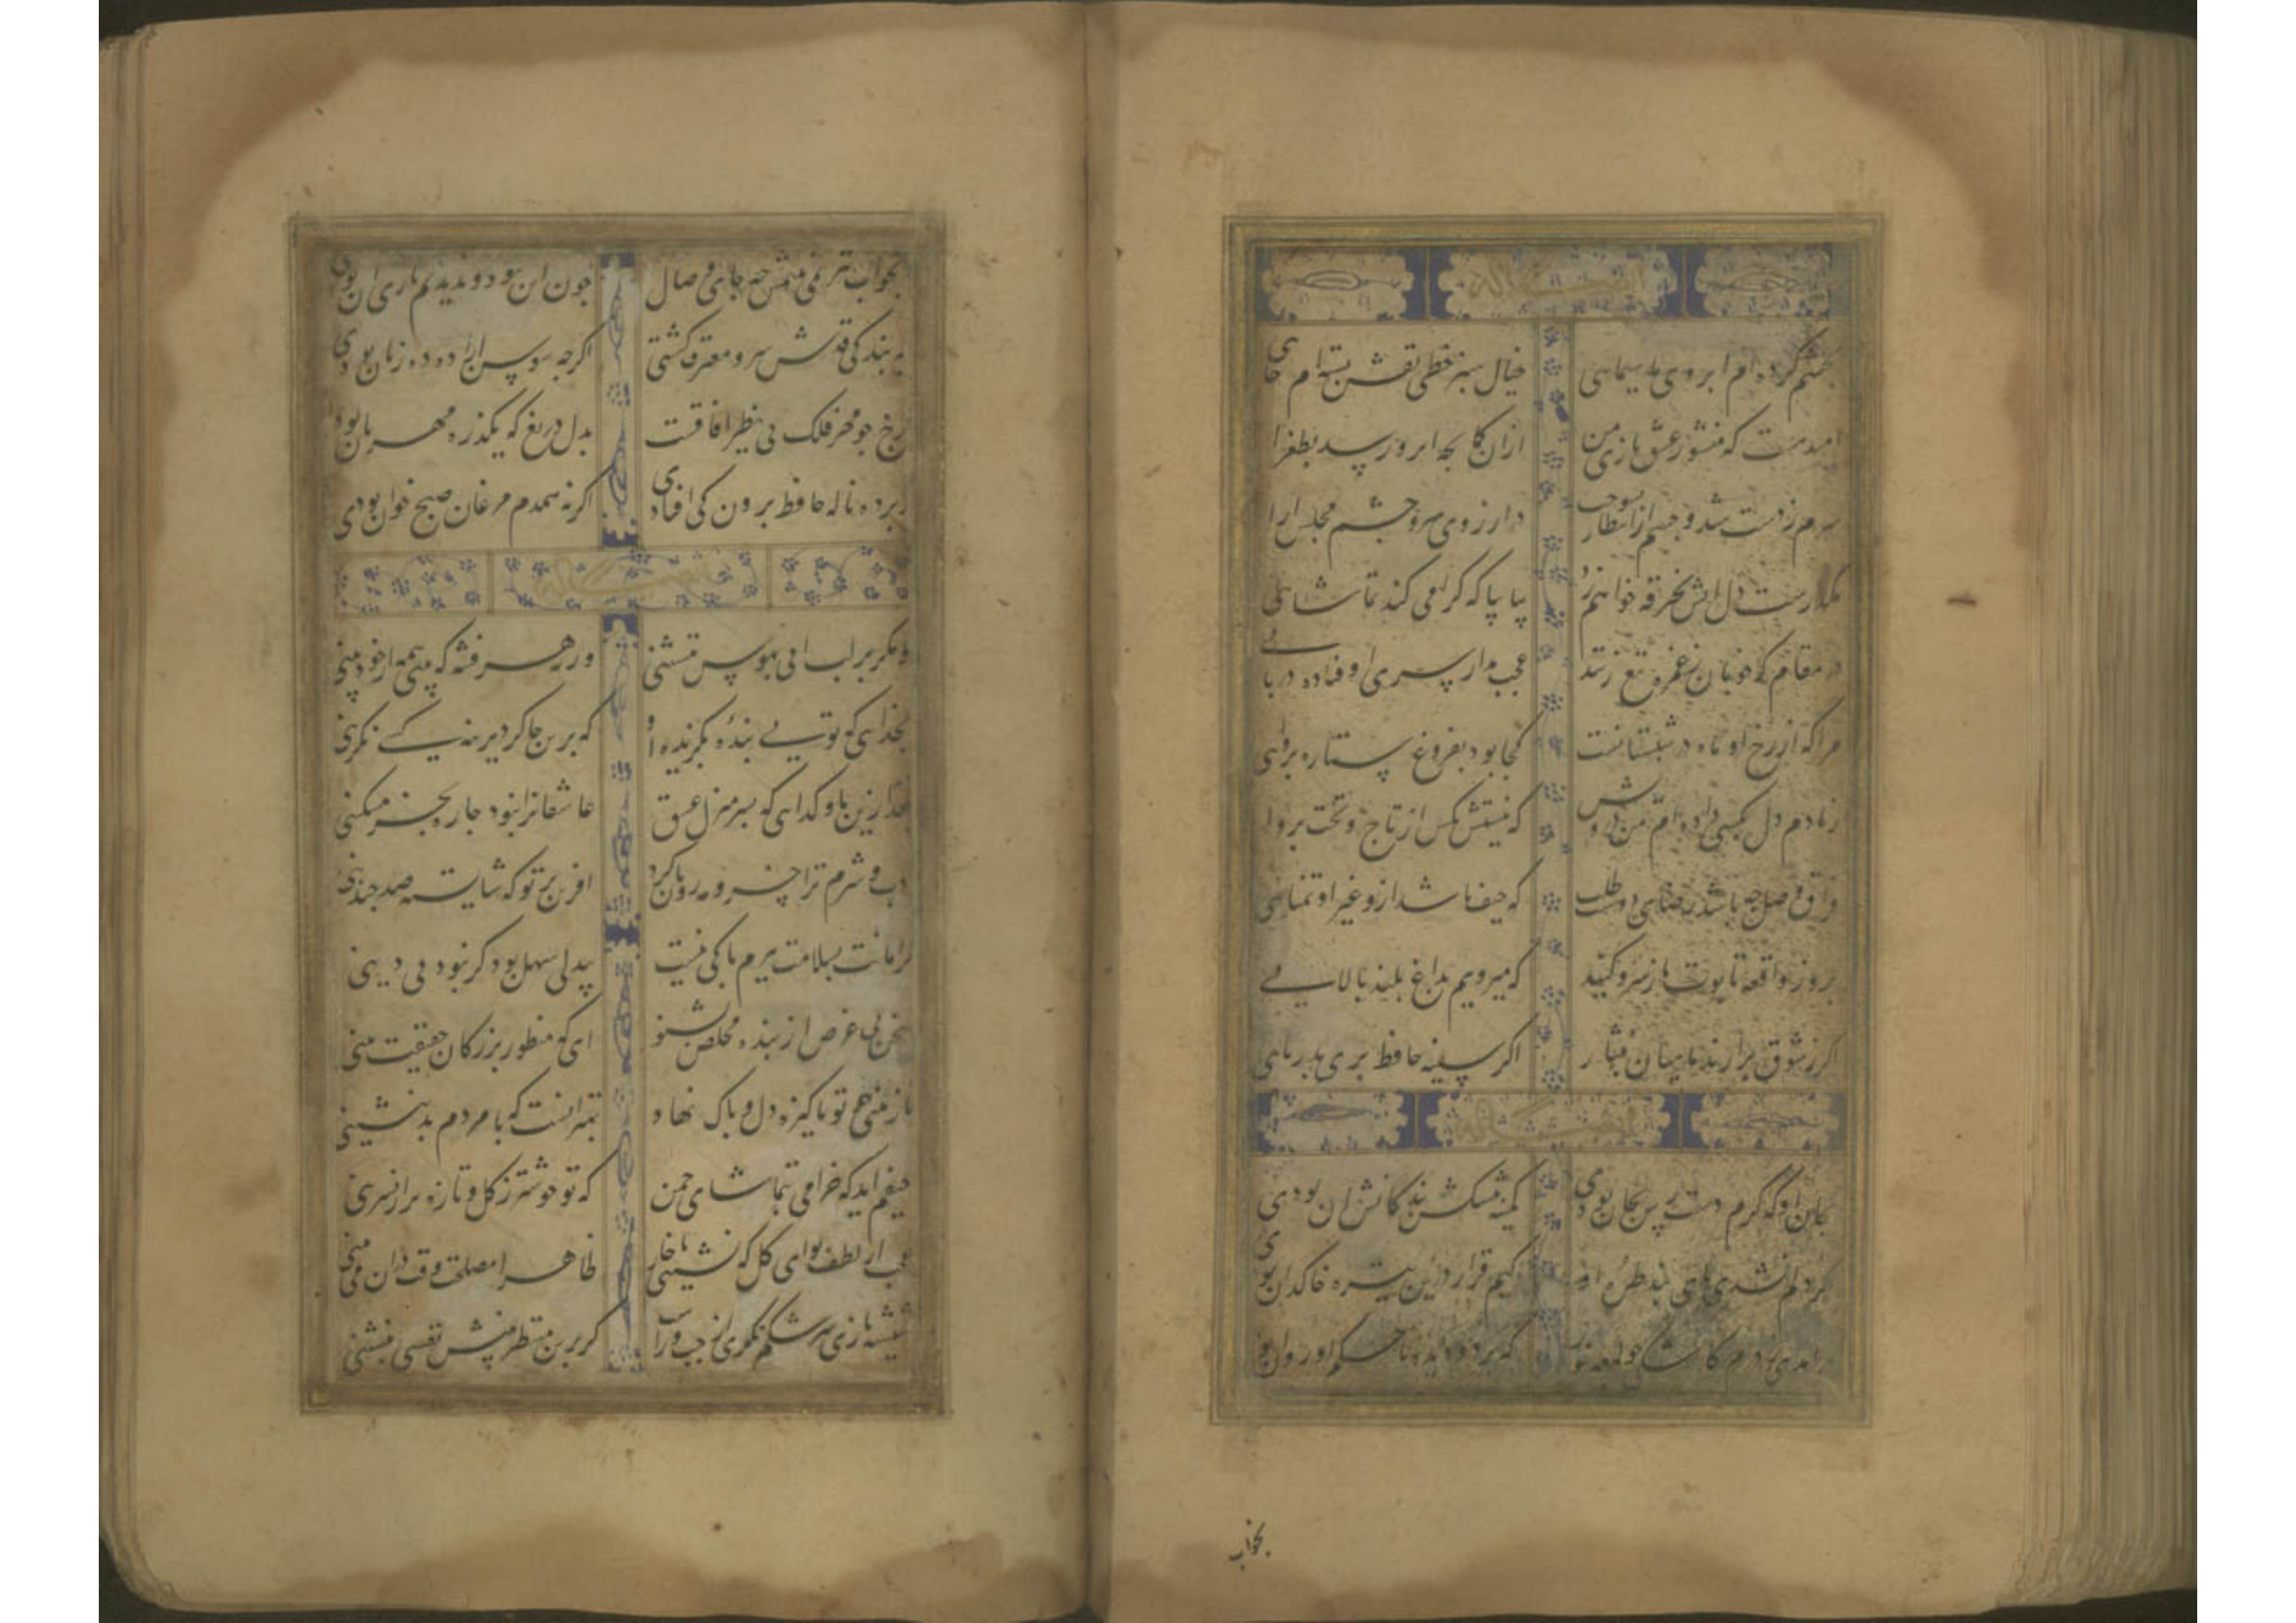 بچشم کرده ام ابروی ماه سیمایی خیال سبز خطی نقش بسته ام جایی
امیدست که منشور عشق بازی من ازان کمانچه ابرو رسد بطغرا
سرم ز دست شد و چشم از انتظار بسوخت در ارزوی سر و چشم مجلس ارا
مکدرست دل اتش بخرقه خواهم زد بیا بیا که کرا می کند تماشایی
در مقام که خوبان ز غمزه تیغ زنند عجب مدار سری اوفتاده در پایی
مرا که از رخ او ماه در شبستانست کجا بود بفروغ ستاره پروایی
زمام دل بکسی داده ام من درویش که نیستش بکس از تاج و تخت پروا
فراق و وصل چه باشد رضای دوست طلب که حیف باشد ازو غیر او تمنایی
بروز واقعه تابوت ما ز سرو کنید که میرویم بداغ بلند بالایی
درر ز شوق برارند ماهیان بنثار اکر سفینه حافظ بری بدریایی
بجان او که کرم دست رس بجان بودی کمینه پیشکش بندکانش ان بودی
کر دلم نشدی پای بند طره او کیم قرار درین تیره خاکدان بودی
درامدی ز درم کاشکی چو لمعه نور که بر دو دیده ما حکم او روان بو
بخواب
بخواب نیز نمی بینمش چه جای وصال چون این نبود و ندیدیم باری ان بودی
به بندکی قدش سرو معترف کشتی اکرچه سوسن ازاده ده زبان بودی
رخ چو مهر فلک بی نظیر افاقست بدل دریغ که یکذره مهربان بود
ز پرده ناله حافظ برون کی افتادی اکر نه همدم مرغان صبح خوان بودی
تو مکر بر لب ابی بهوس ننشینی ورنه هر فتنه که بینی همه از خود بینی
بخدایی که تویی بنده بکزیده او که برین چاکر دیرینه کسی نکزینی
بعد ازین ما و کدایی که بسر منزل عشق عاشقانرا نبود چاره بجز مسکینی
ادب و شرم ترا خسرو مه رویان کرد افرین بر تو که شایسته صد چندینی
کر امانت بسلامت ببرم باکی نیست بیدلی سهل بود کر نبود بی دینی
سخن بی غرض از بنده مخلص بشنو ای که منظور بزرکان حقیقت بینی
نازنینی چو تو پاکیزه دل و پاک نهاد بهتر انست که با مردم بد ننشینی
حیفم اید که خرامی بتماشای چمن که تو خوشتر ز کل و تازه تر از نسرینی
عجب از لطف تو ای کل که نشینی با خار ظاهرا مصلحت وقت دران می بینی
شیشه بازی سرشکم نکری از چپ و راست کر برین منظر بینش نفسی بنشینی